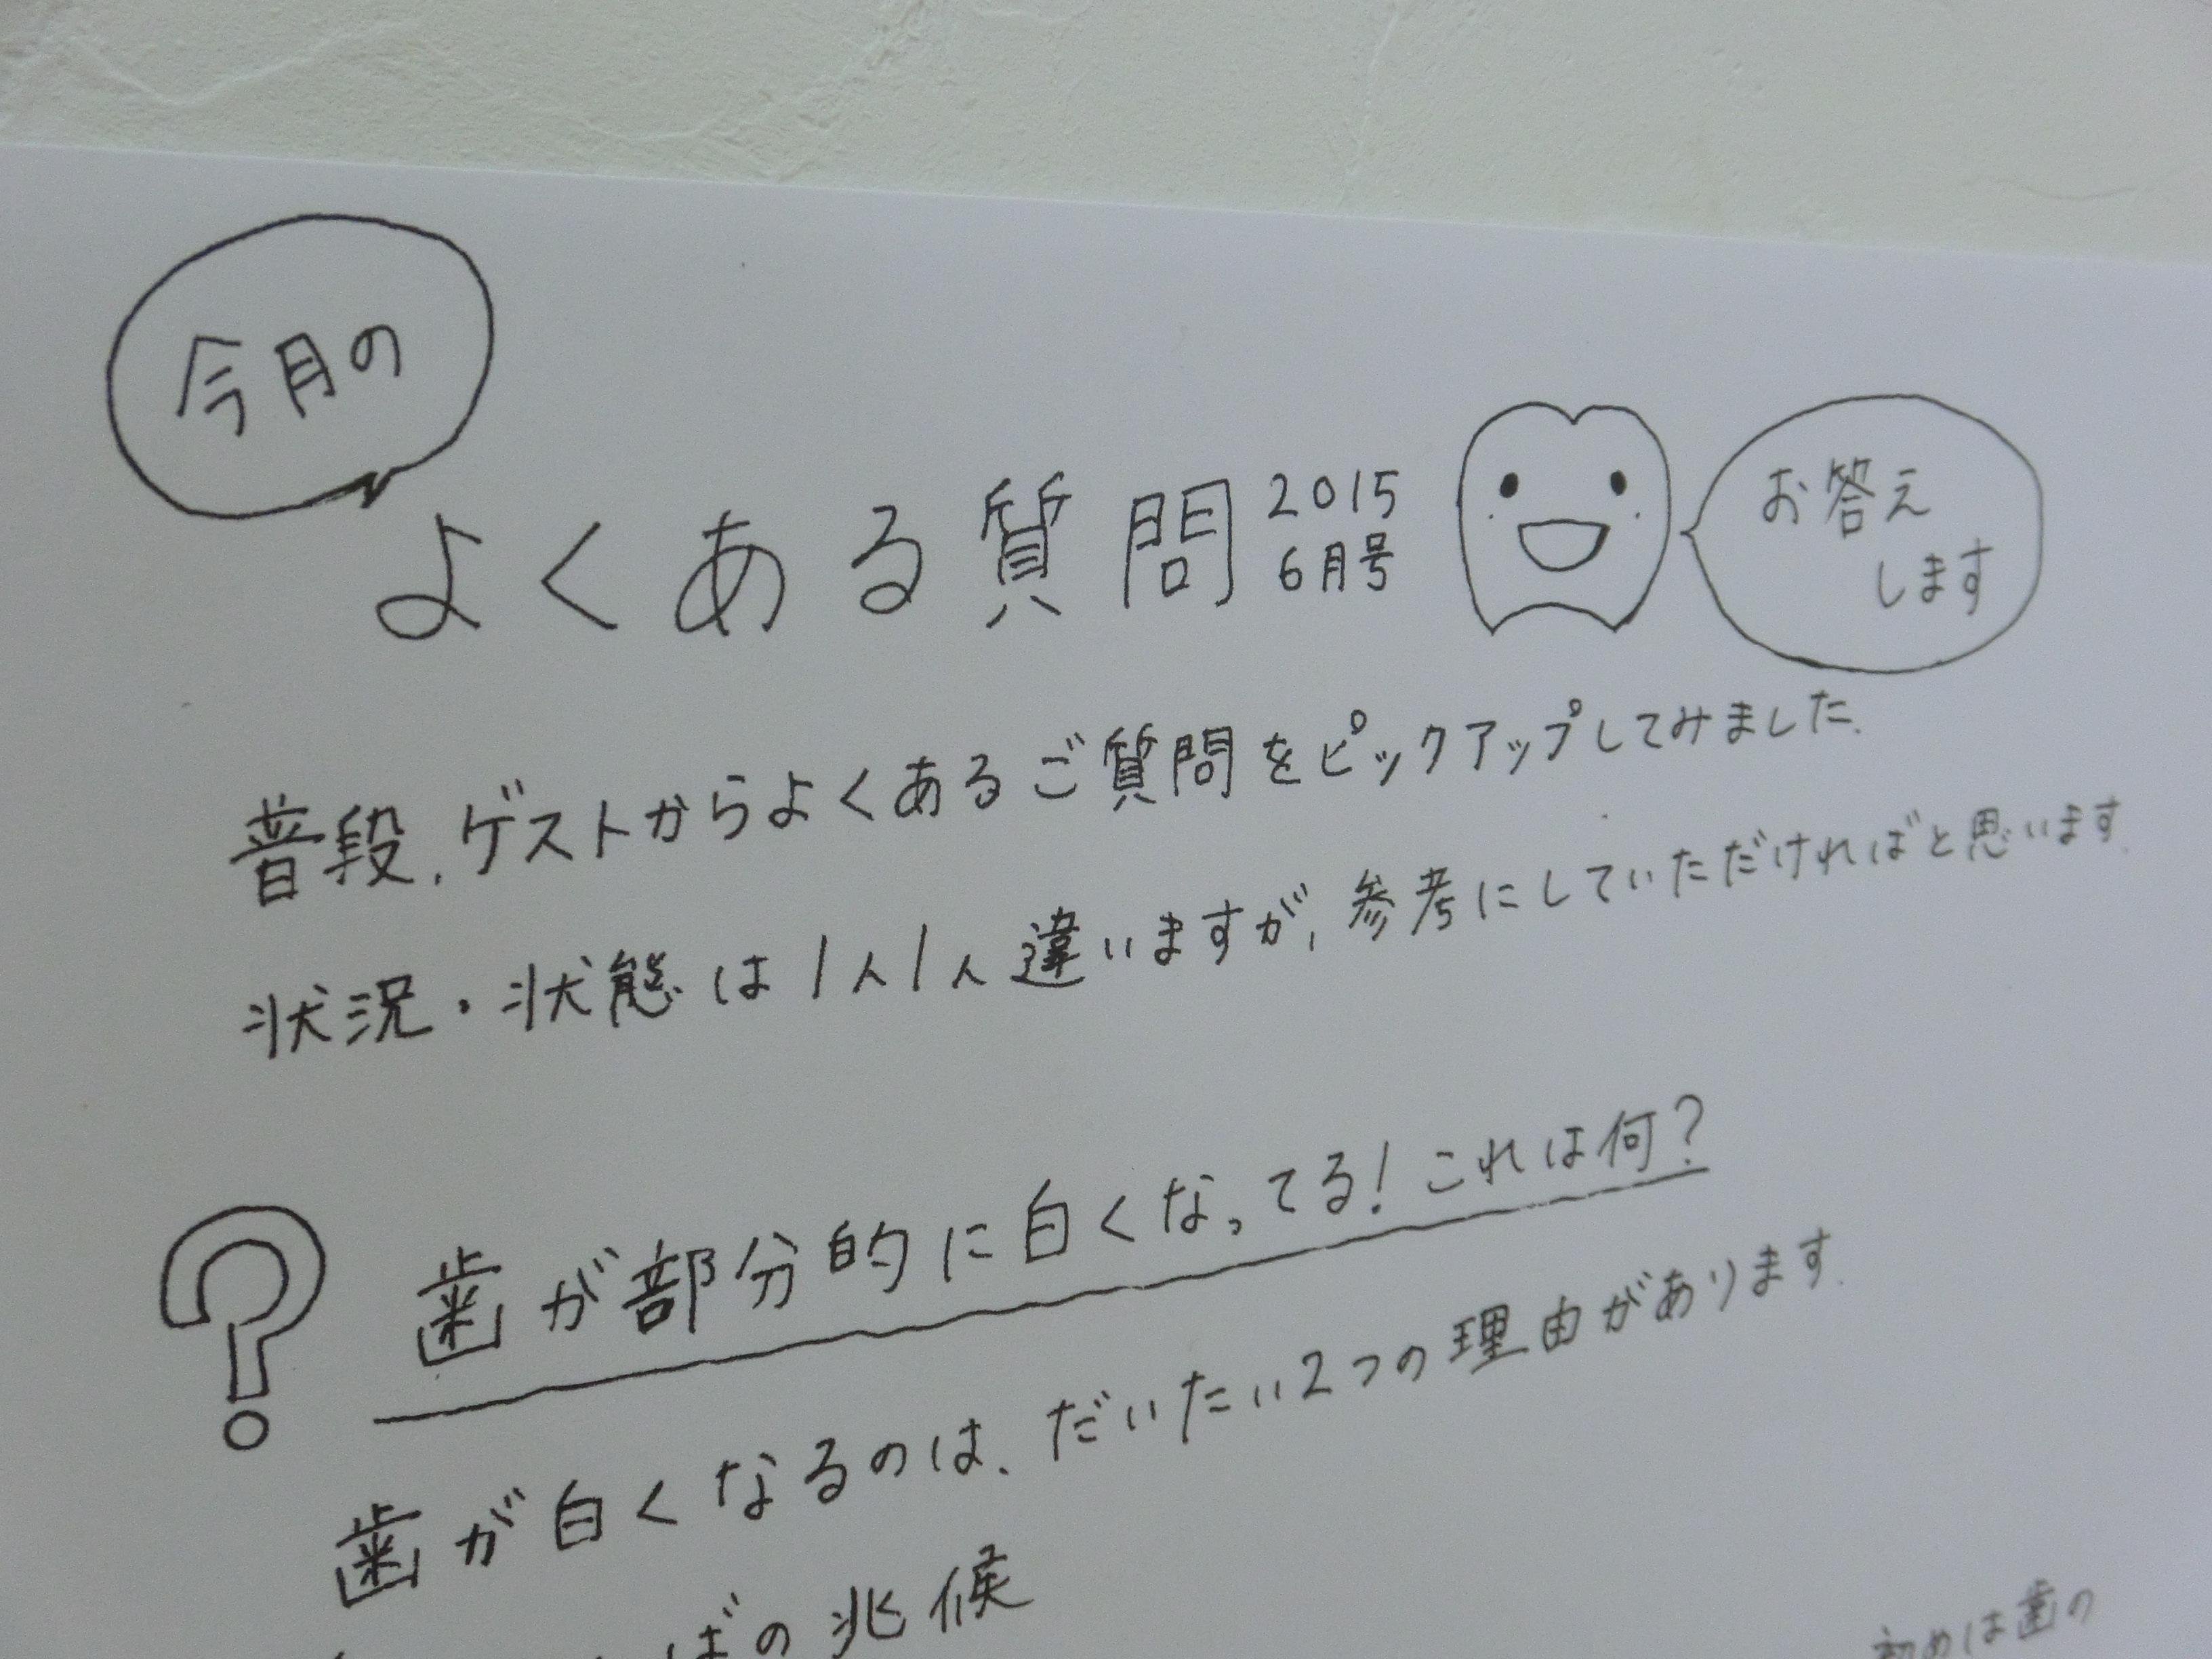 今月の
よくある質問
2015
6月号
お答え
します
普段、ゲストからよくあるご質問をピックアップしてみました。
状況・状態は1人1人違いますが、参考にしていただければと思います。
歯が部分的に白くなってる!これは何?
歯が白くなるのは、だいたい2つの理由があります。
ばの兆候
初めは歯の